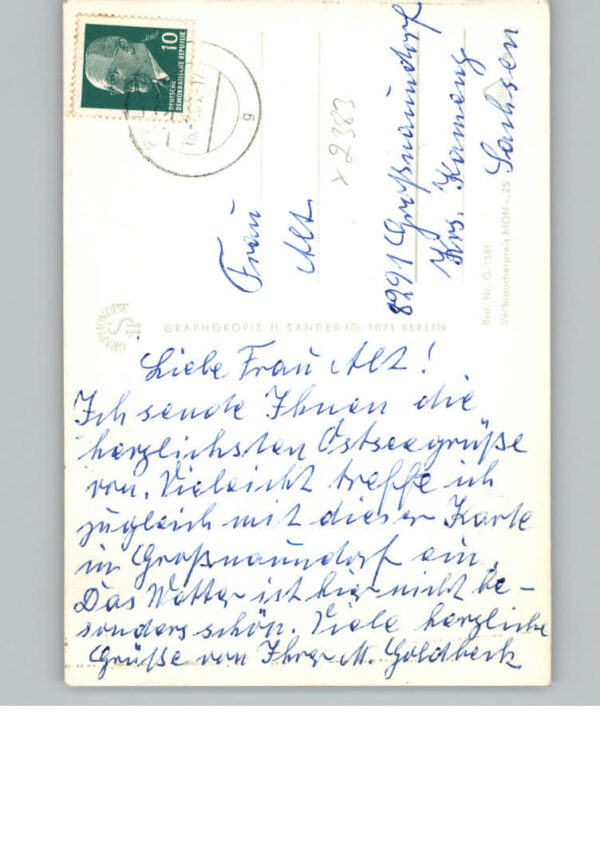 10
DEUTSCHE
DEMOKRATISCHE REPUBLIK
Frau
Alt
8291 Großnaundorf
Krs. Kamenz
Sachsen
x 2383
Best. Nr. G 1581
Verbraucherpreis MDN -,25
GRAPHOKOPIE
GRAPHOKOPIE H. SANDER KG, 1071 BERLIN
Liebe Frau Alt!
Ich sende Ihnen die
herzlichsten Ostseegrüße
von. Vieleicht treffe ich
zugleich mit dieser Karte
in Großnaundorf ein.
Das Wetter ist hier nicht be-
sonders schön. Viele herzliche
Grüße von Ihrer M. Goldbeck